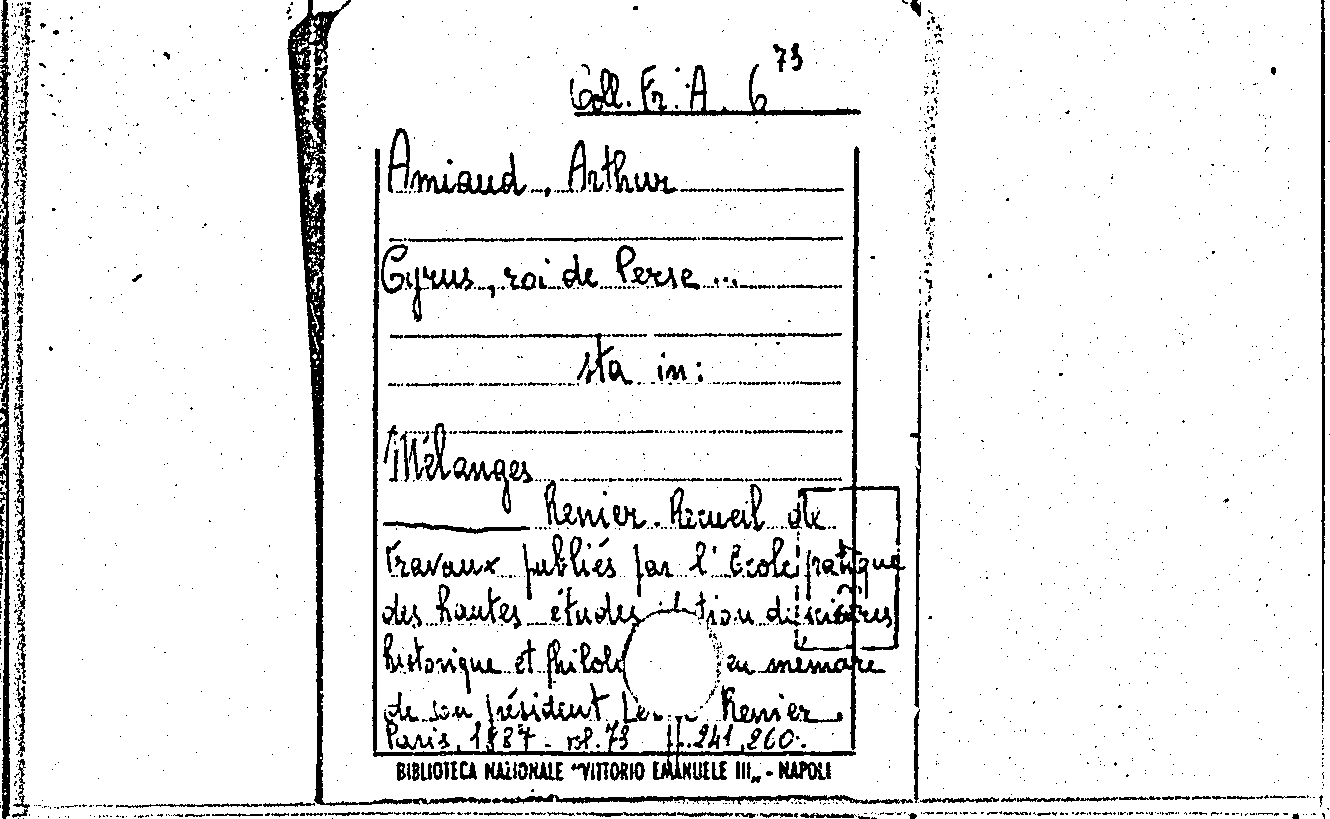 Coll. Fr. A. 6 73
Amiaud, Arthur
Cyrus, roi de Perse...
sta in:
Mélanges
Renier. Recueil de
travaux publiés par l'École pratique
des hautes études
historique et en memoire
de son président Renier.
Paris, 1887 - vol. 73 241, 260.
BIBLIOTECA NAZIONALE "VITTORIO EMANUELE III„ - NAPOLI